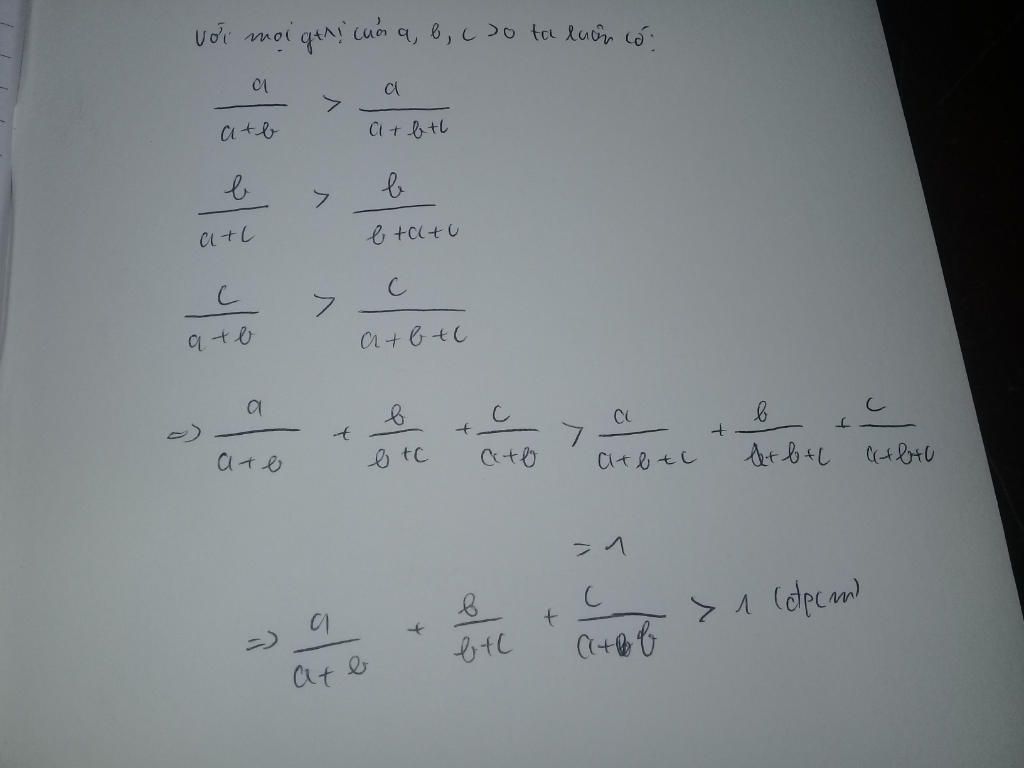 Với mọi gtrị của a, b, c >0 ta luôn có:
a/(a+b) > a/(a+b+c)
b/(a+c) > b/(b+a+c)
c/(a+b) > c/(a+b+c)
=> a/(a+b) + b/(b+c) + c/(a+b) > a/(a+b+c) + b/(a+b+c) + c/(a+b+c)
= 1
=> a/(a+b) + b/(b+c) + c/(a+b) > 1 (đpcm)